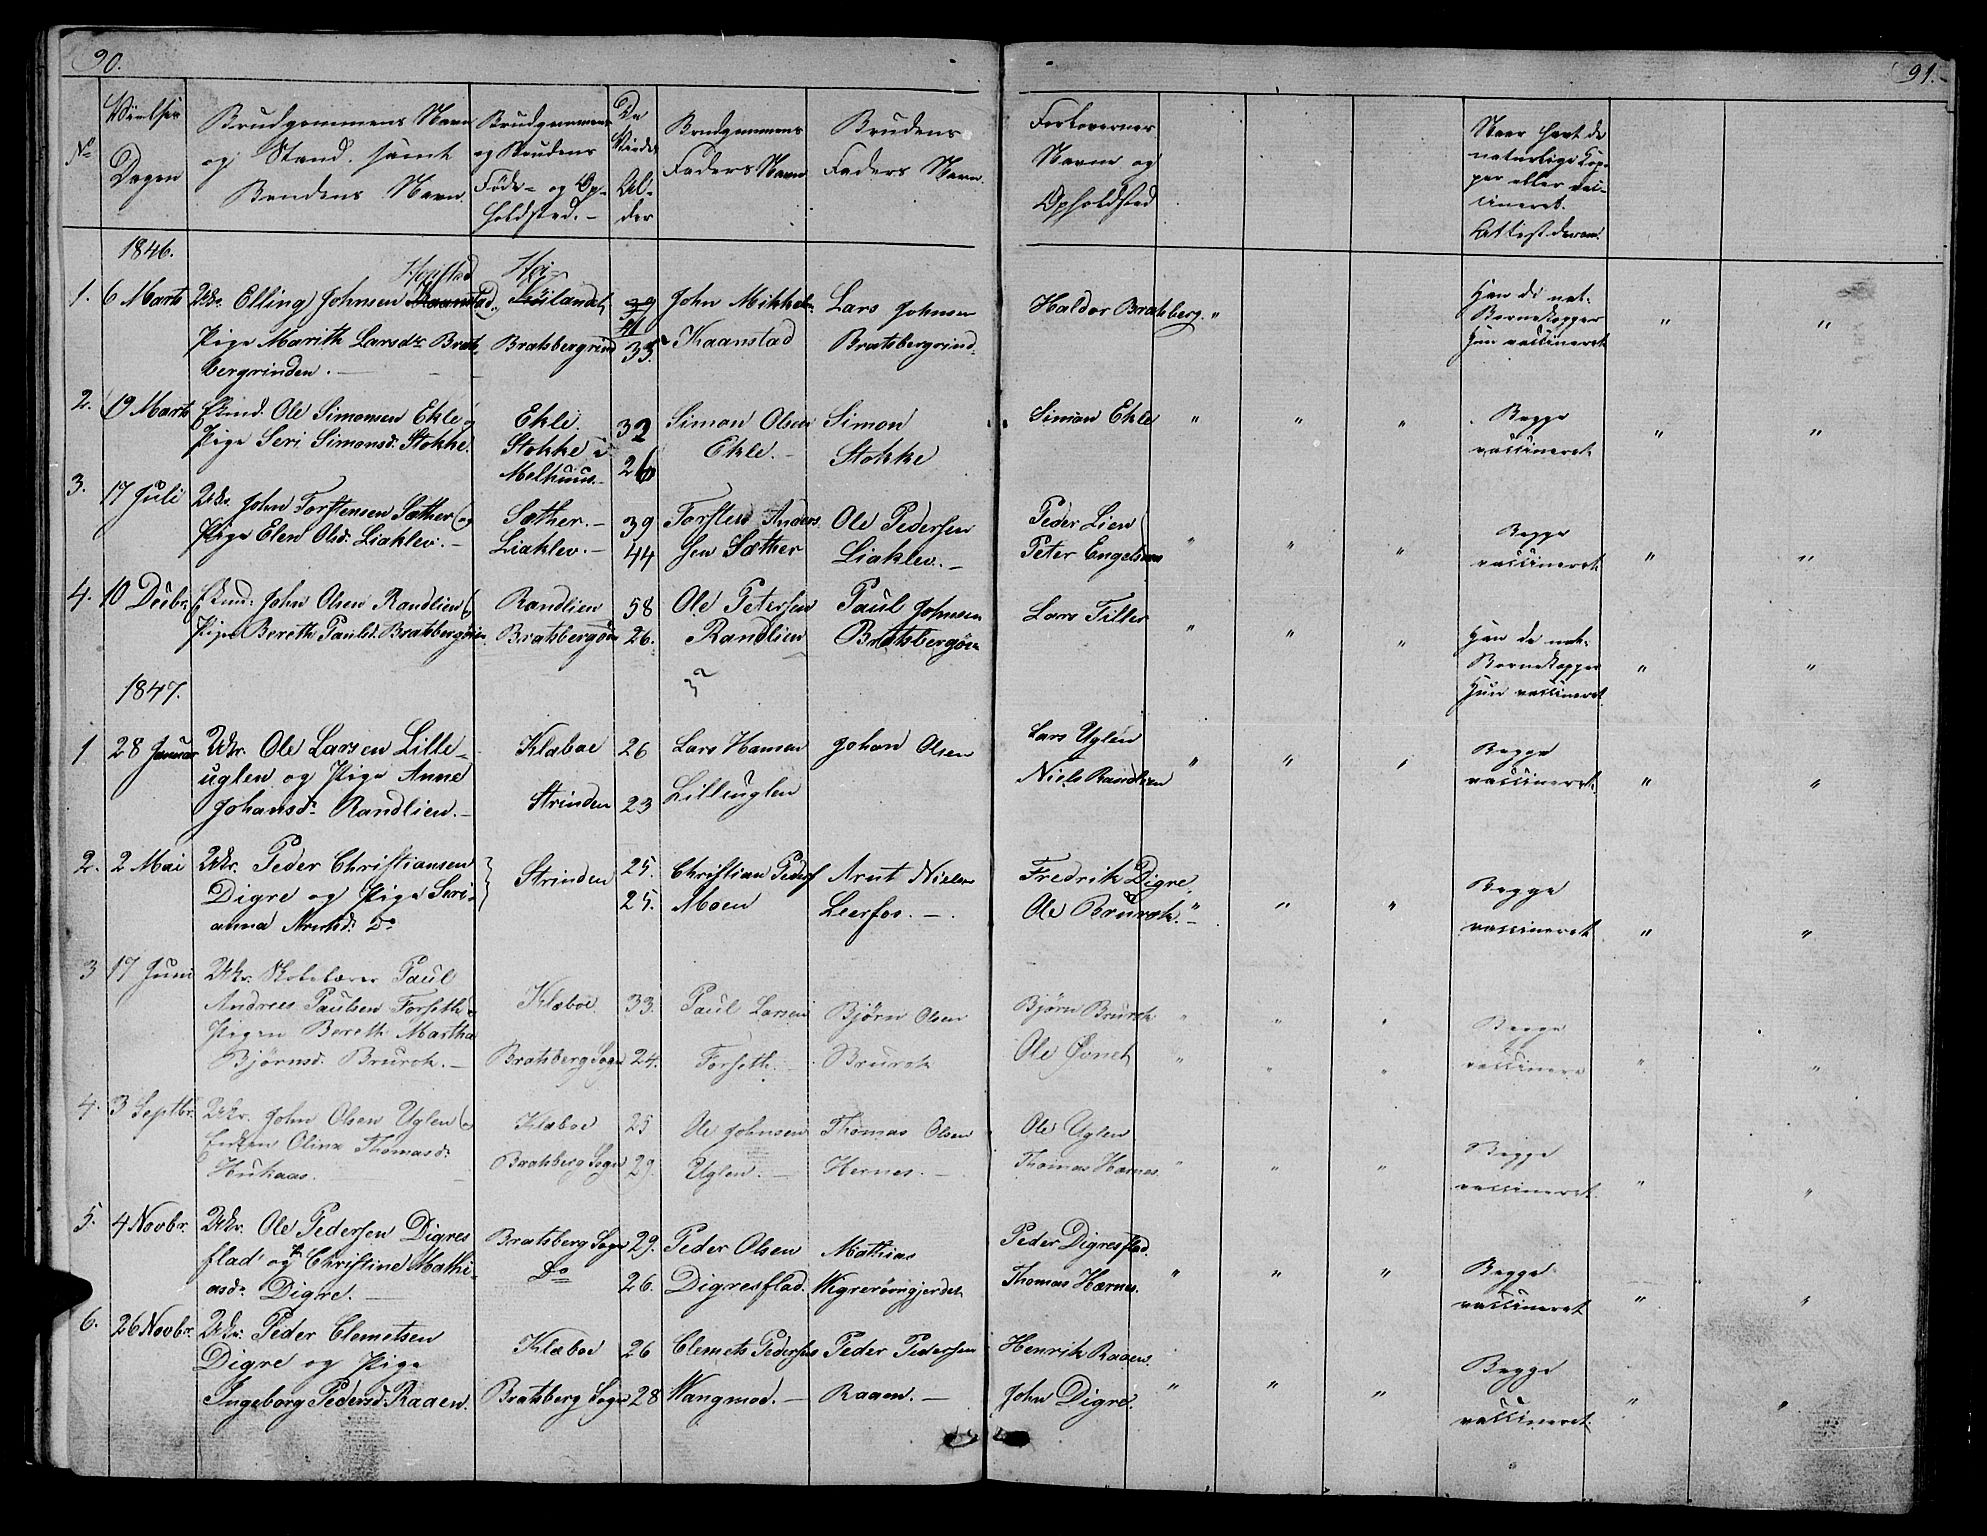 90.
91.
No
Vielses
Dagen
Brudgommens Navn
og Stand, samt
Brudens Navn
Brudgommens
og Brudens
Føde- og Op-
holdsted.-
De
Viedes
Al-
der
Brudgommens
Faders Navn
Brudens
Faders Navn.
Forlovernes
Navne og
Opholdsted
Naar havt de
naturlige Kop-
per eller vac-
cineret.
Attest derom.
1846.
1. 6 Marts Ukr. Elling Johnsen
Pige Marith Larsdr. Brats-
bergrinden.
Bratsbergrind
41
33.
John Mikkelsen
Kaanstad
Lars Johnsen
Bratsbergrind
Haldor Bratsberg. "
Han de nat.
Børnekopper
Hun vaccineret
" "
2. 19 Marts Ekmd. Ole Simonsen Ekle og
Pige Seri Simonsd. Stokke.
Ekle.
Stokke i
Melhuus.-
32
26
Simon Olsen
Ekle.-
Simon
Stokke
Simon Ekle " " "
Begge
vaccineret
" "
3. 17 Juli Ukr. John Torstensen Sæther og
Pige Elen Olsd. Liaklev.-
Sæther.-
Liaklev.-
39
44
Torsten Anders
sen Sæther
Ole Pedersen
Liaklev.-
Peder Lien
Peter Engelsen
" " "
Begge
vaccineret
" "
4. 10 Decbr. Ekmd. John Olsen Randlien
Pige Bereth Paulsd. Bratsbergøien.
Randlien
Bratsbergøien
58
26.
Ole Petersen
Randlien
Paul Johnsen
Bratsbergøien
Lars Tiller
" " "
Han de nat.
Børnekopper
Hun vaccineret
" "
1847.
1 28 Januar Ukr. Ole Larsen Lille-
uglen og Pige Anne
Johansdr. Randlien.-
Klæboe
Strinden
26
23
Lars Hansen
Lilleuglen
Johan Olsen
Lars Uglen
Niels Randlien
" " "
Begge
vaccineret
" "
2. 2 Mai Ukr. Peder Christiansen
Digre og Pige Seri-
anna Arntsd. Do
Strinden
25.
25.
Christian Peders
Moen
Arnt Nielsen
Leerfos.-
Fredrik Digre
Ole Brurok.
" " "
Begge
vaccineret
" "
3 17 Juni Ukr. Skolelærer Paul
Andreas Paulsen Forseth
Pigen Bereth Martha
Bjørnsd. Brurok.-
Klæboe
Bratsberg Sogn
33.
24.
Paul Larsen
Forseth.-
Bjørn Olsen
Brurok
Bjørn Brurok
Ole
" " "
" " "
Begge
vaccinere
" "
4. 3 Septbr. Ukr. John Olsen Uglen
Enken Olina Thomasdr.
Klæboe
Bratsberg Sogn
25
29.
Ole Johnsen
Uglen.-
Thomas Olsen
Hernes.-
Ole Uglen
Thomas Hærnes
" " "
Begge
vaccineret.
" "
5. 4 Novbr. Ukr. Ole Pedersen Digres
flad og P Christine Mathi-
asdr. Digre.
Bratsberg Sogn
Do
29.
26.
Peder Olsen
Digresflad.
Mathias
Peder Digresflad.
Thomas Hærnes.
" " "
Begge
vaccineret
" "
6. 26 Novbr. Ukr. Peder Clemetsen
Digre og Pige
Ingeborg Pedersd. Raaen.
Klæboe
Bratsberg Sogn
26
28
Clemets Pedersen
Wangmoe.-
Peder Pedersen
Raaen.-
Henrik Raaen.
John Digre.
" " "
Begge
vaccineret
" "